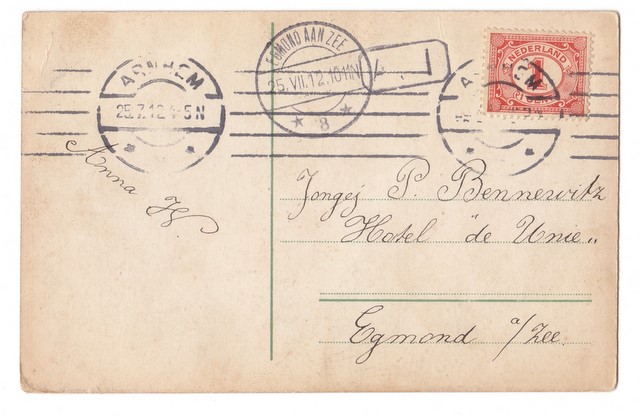 ARNHEM
25.7.12 4-5N
EGMOND AAN ZEE
25.VII.12.10-11N
8
NEDERLAND
1
CENT
Anna H.
Jongej P. Bennewitz
Hotel "de Unie„
Egmond a/Zee.